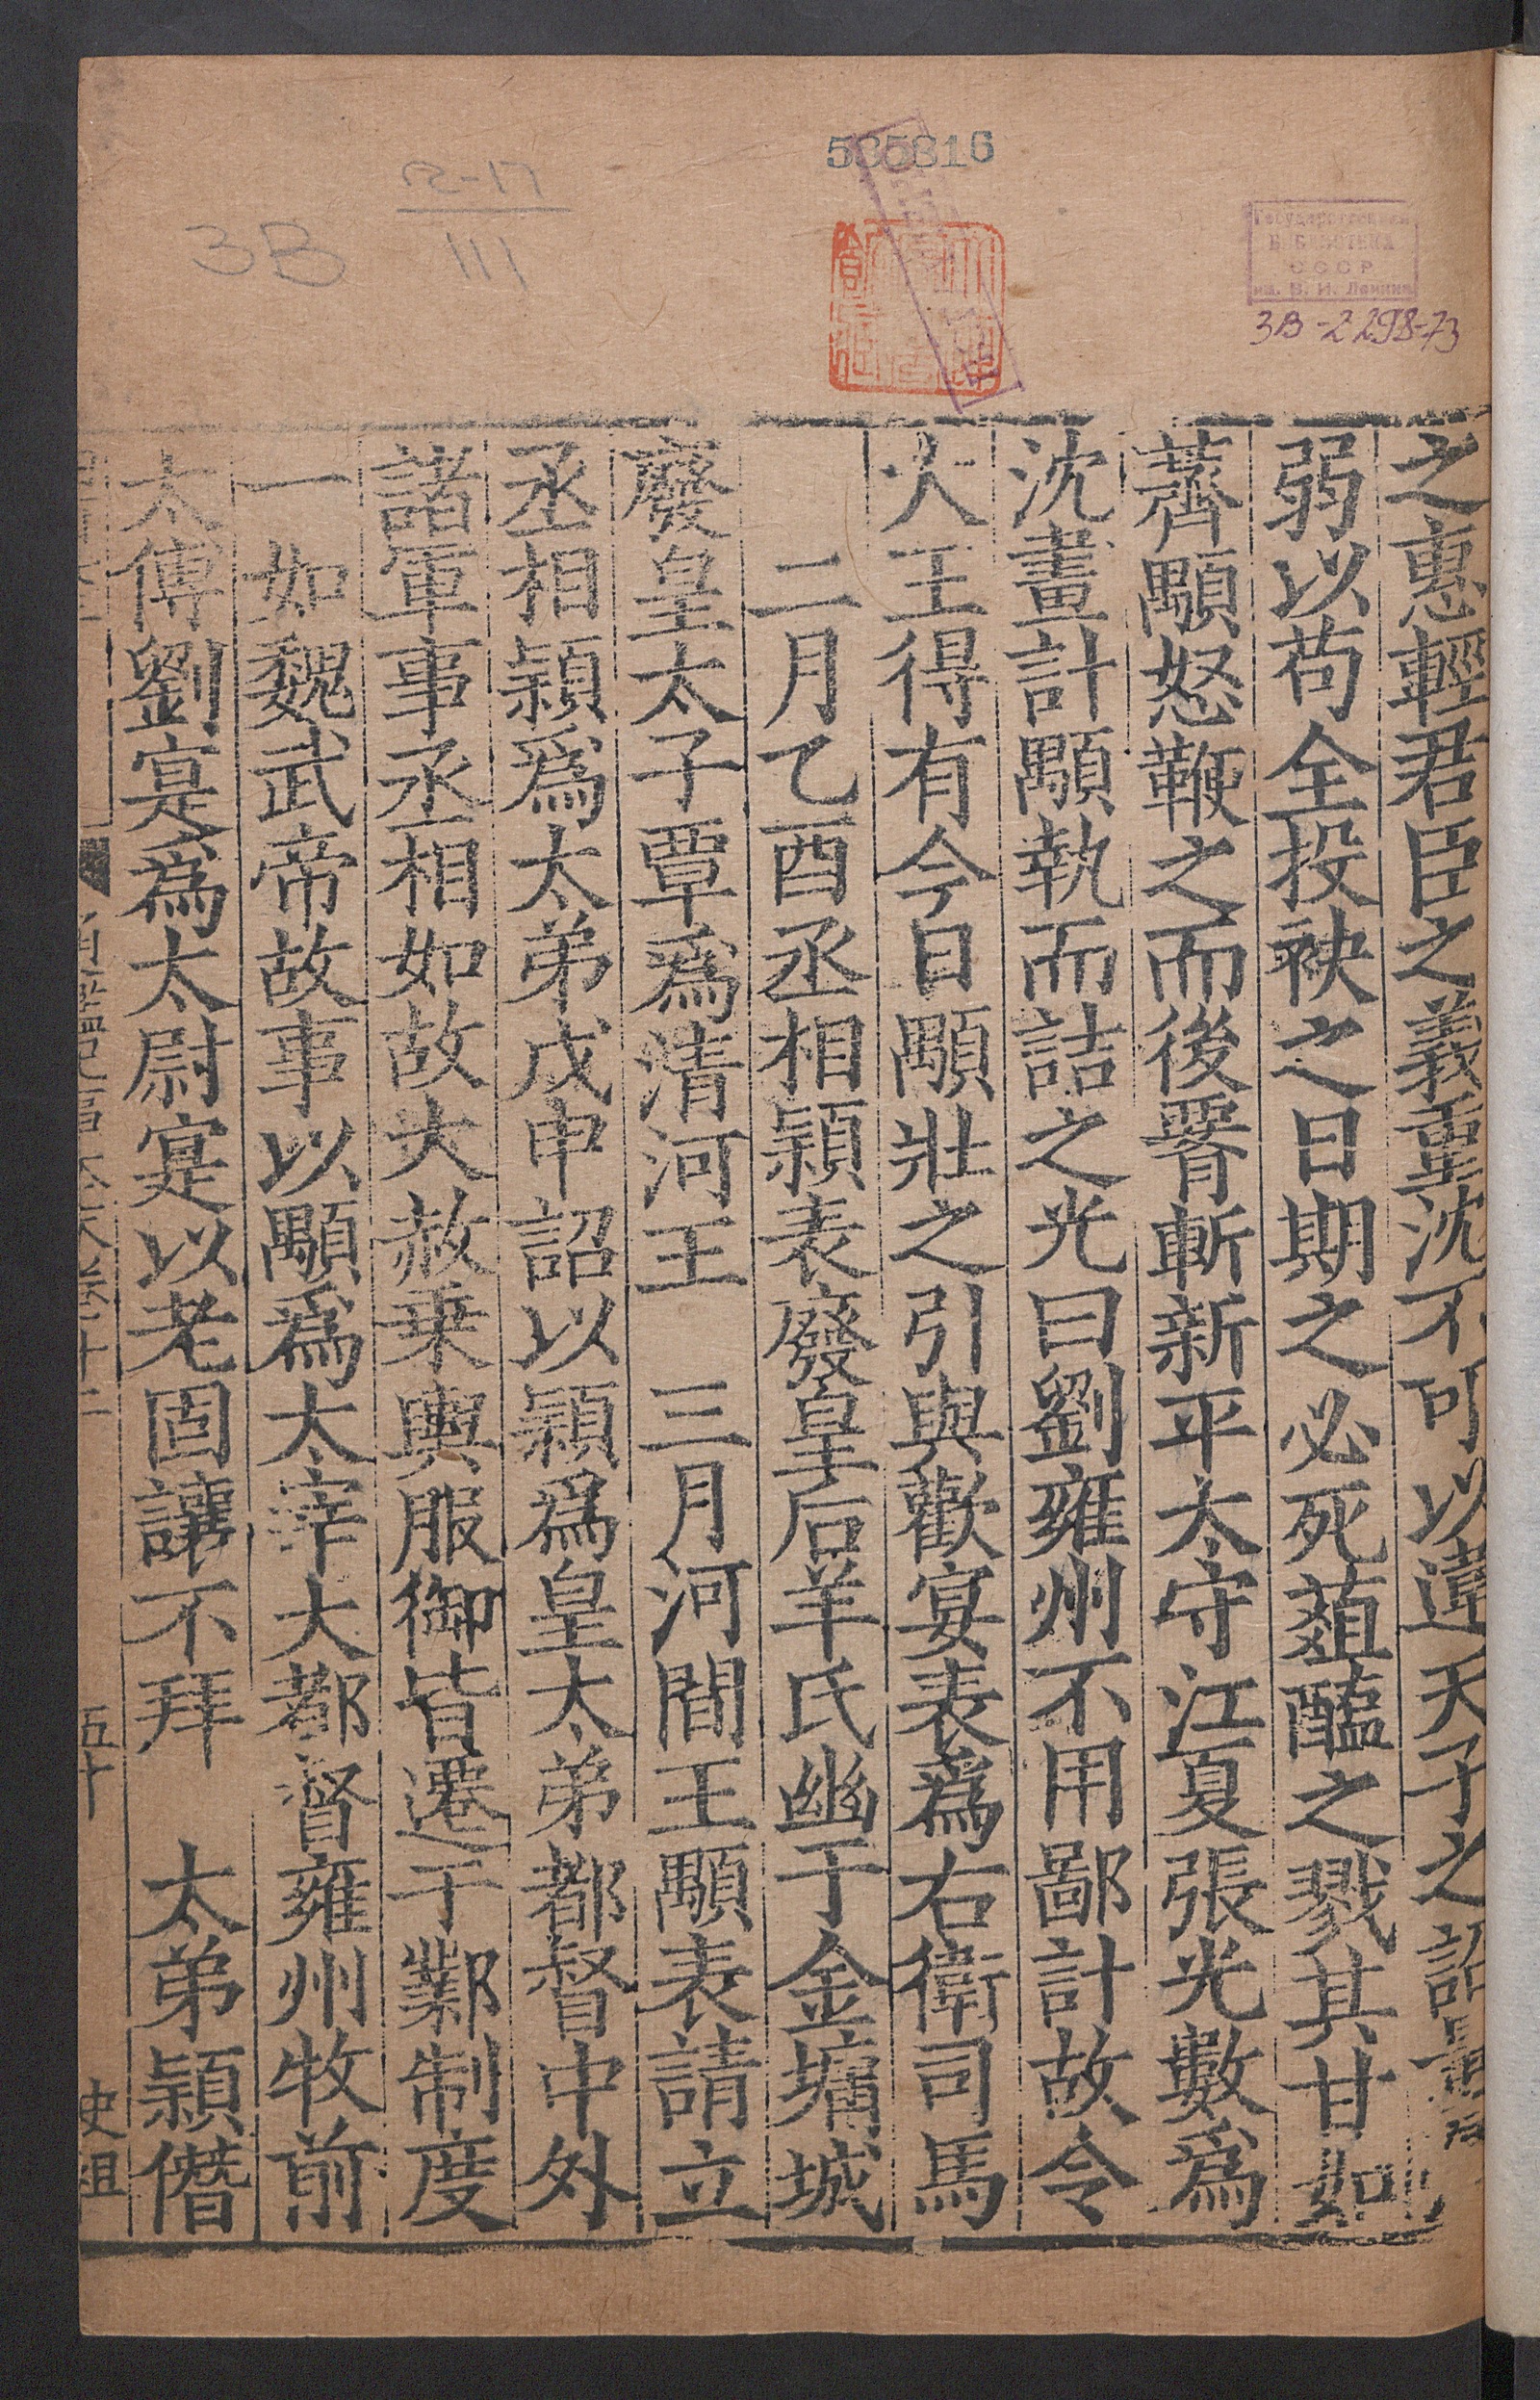 535816
12-17
111
3В
Государственная
БИБЛИОТЕКА
СССР
им. В. И. Ленина
3В-2 298-73
之惠輕君臣之義重沈不可以違天子之詔量
弱以苟全投袂之日期之必死葅醢之戮其甘如
薺顒怒鞭之而後腰斬新平太守江夏張光數爲
沈畫計顒執而詰之光曰劉雍州不用鄙計故令
大王得有今日顒壯之引與歡宴表爲右衛司馬
二月乙酉丞相頴表廢皇后羊氏幽于金墉城
廢皇太子覃爲清河王 三月河間王顒表請立
丞相頴爲太弟戊申詔以頴爲皇太弟都督中外
諸軍事丞相如故大赦乗輿服御皆遷于鄴制度
一如魏武帝故事以顒爲太宰大都督雍州牧前
太傅劉寔爲太尉寔以老固讓不拜 太弟頴僭
五十
史祖